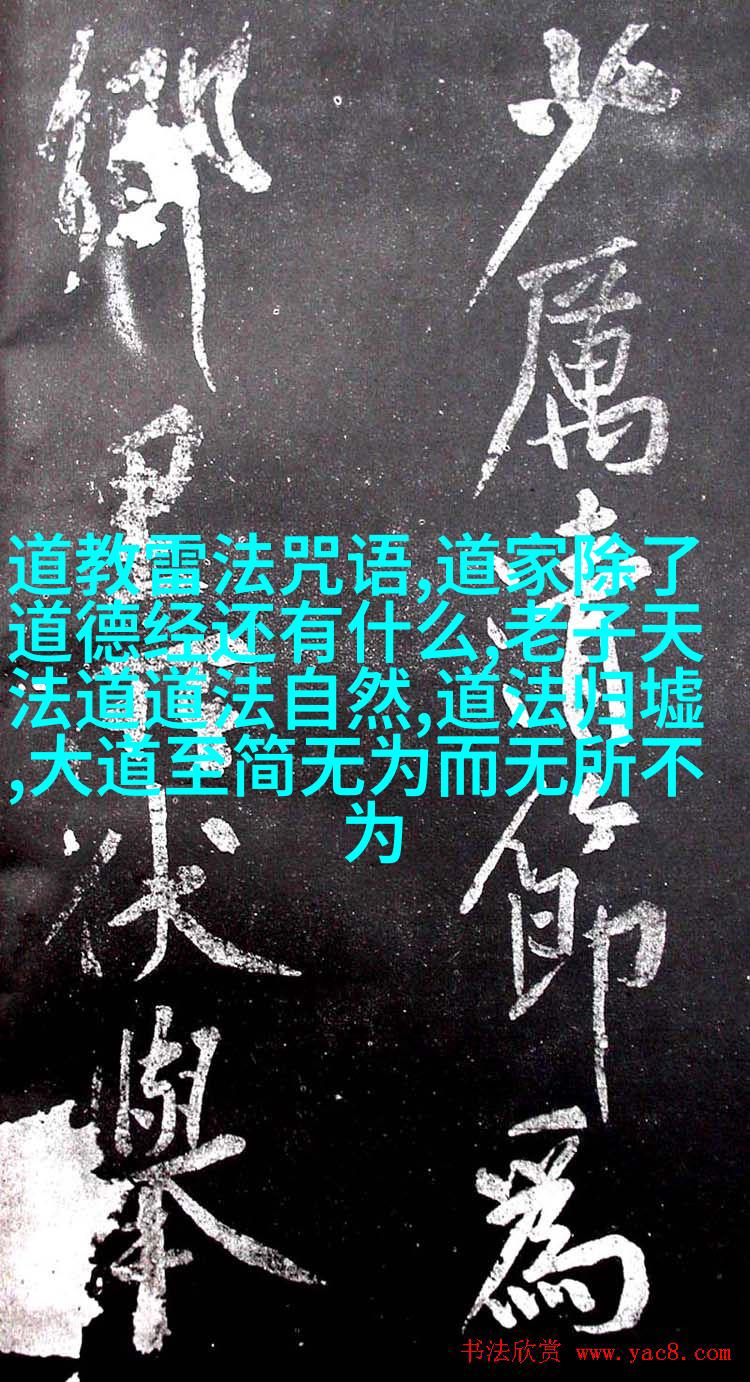 少厲清節為
鄉里伏舉
道教雷法咒语,道家除了
道德经还有什么,老子天
法道道法自然,道法归墟
,大道至简无为而无所不
为
书法欣赏 www.yac8.com